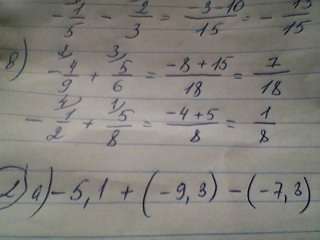 - 1/5 - 2/3 = -3-10/15 = - 13/15
в) - 4/9 + 5/6 = -8+15/18 = 7/18
- 1/2 + 5/8 = -4+5/8 = 1/8
2) а) - 5,1 + (-9,3) - (-7,3)